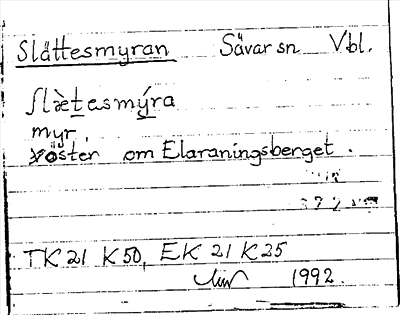 Slättesmyran Sävar sn Vbl.
slæ̀tesmýra
myr
öster om Elaraningsberget.
TK 21 K 50, EK 21 K 25
1992.